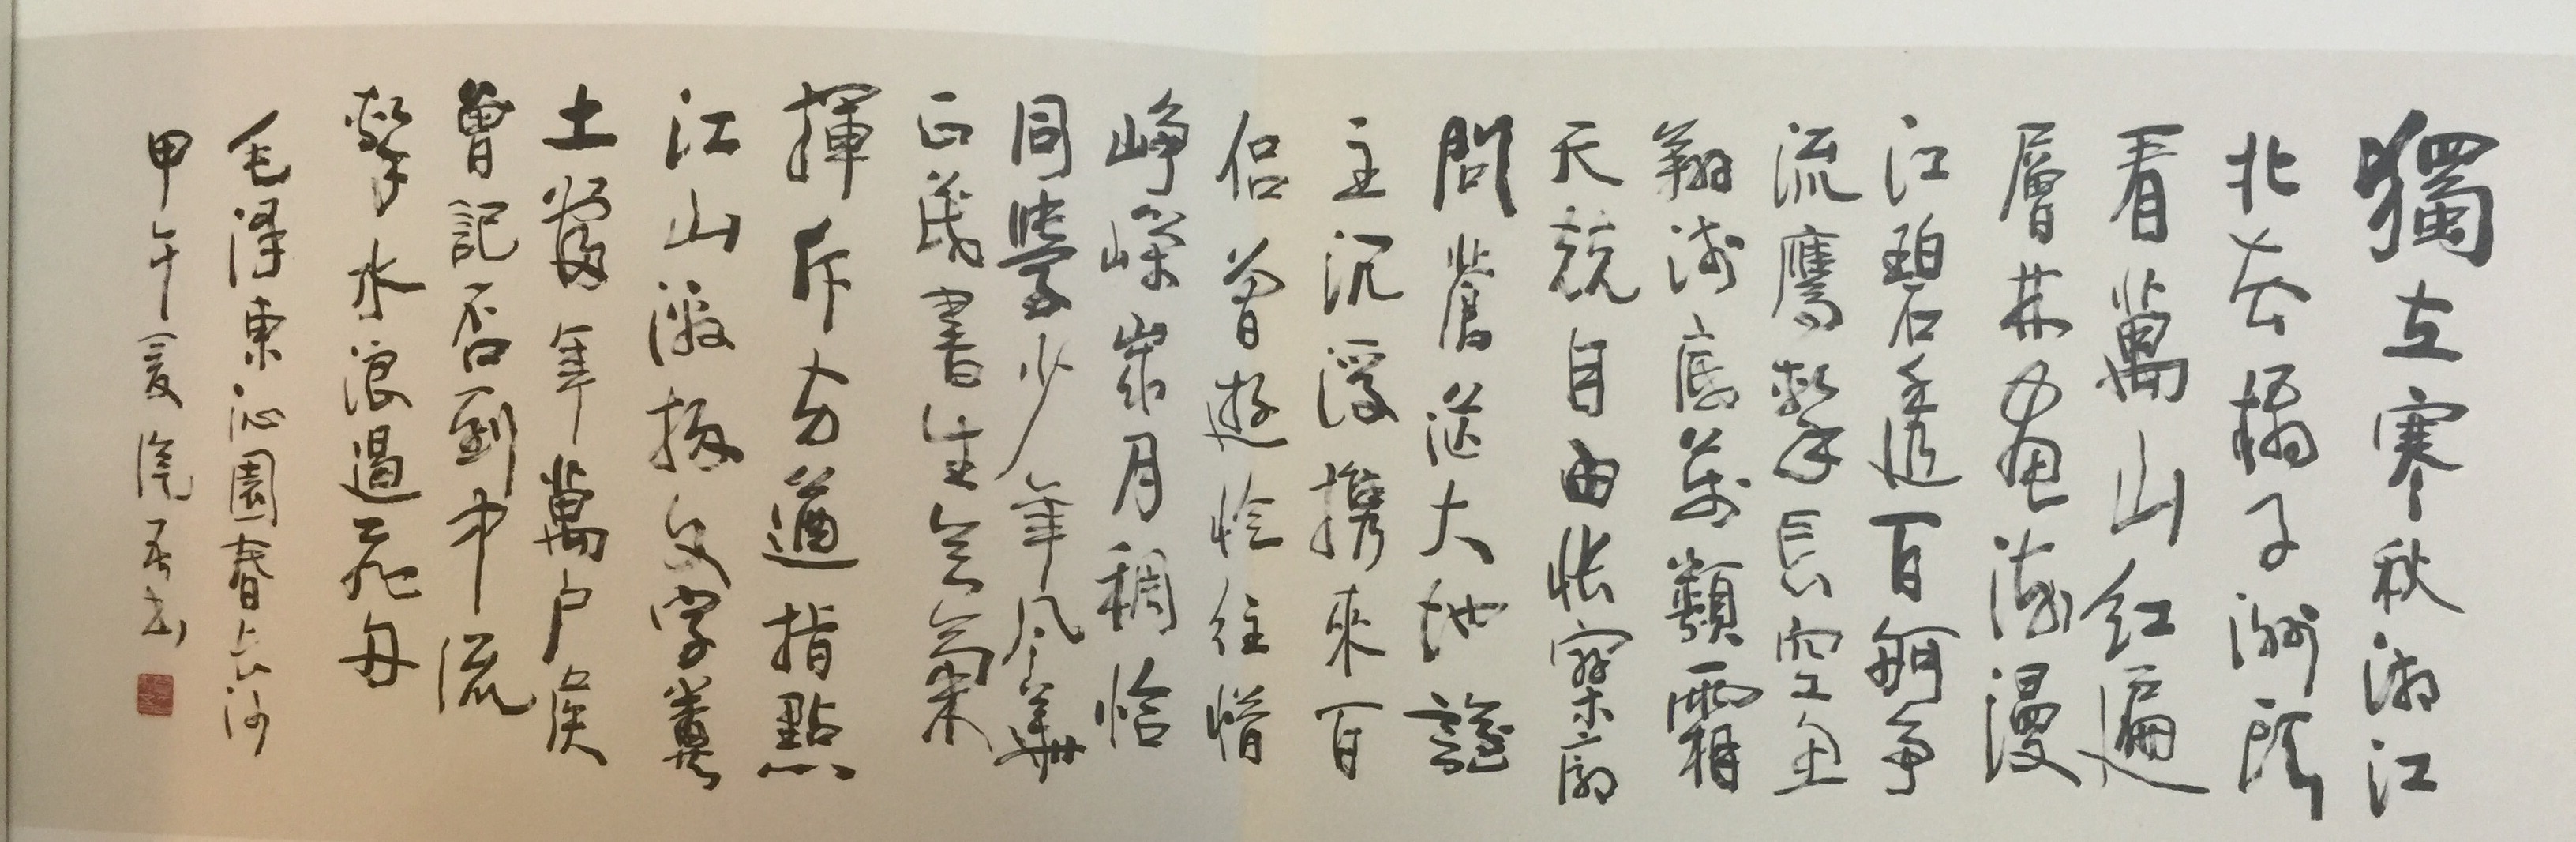 獨立寒秋湘江
北去橘子洲頭
看萬山紅遍
層林盡染漫
江碧透百舸爭
流鷹擊長空魚
翔淺底萬類霜
天競自由悵寥廓
問蒼茫大地誰
主沉浮携來百
侶曾遊憶往惜
崢嶸歲月稠恰
同學少年風華
正茂書生意氣
揮斥方遒指點
江山激揚文字糞
土當年萬户侯
曾記否到中流
擊水浪遏飛舟
毛澤東沁園春長沙
甲午夏